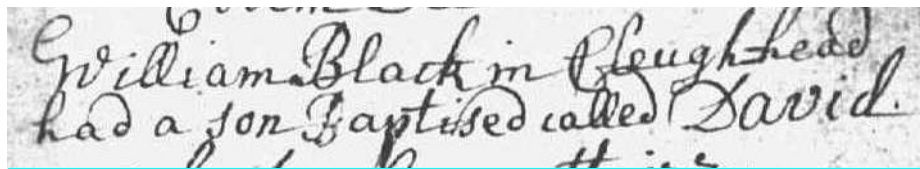 William Black in Cleughhead
had a son Baptised called David.